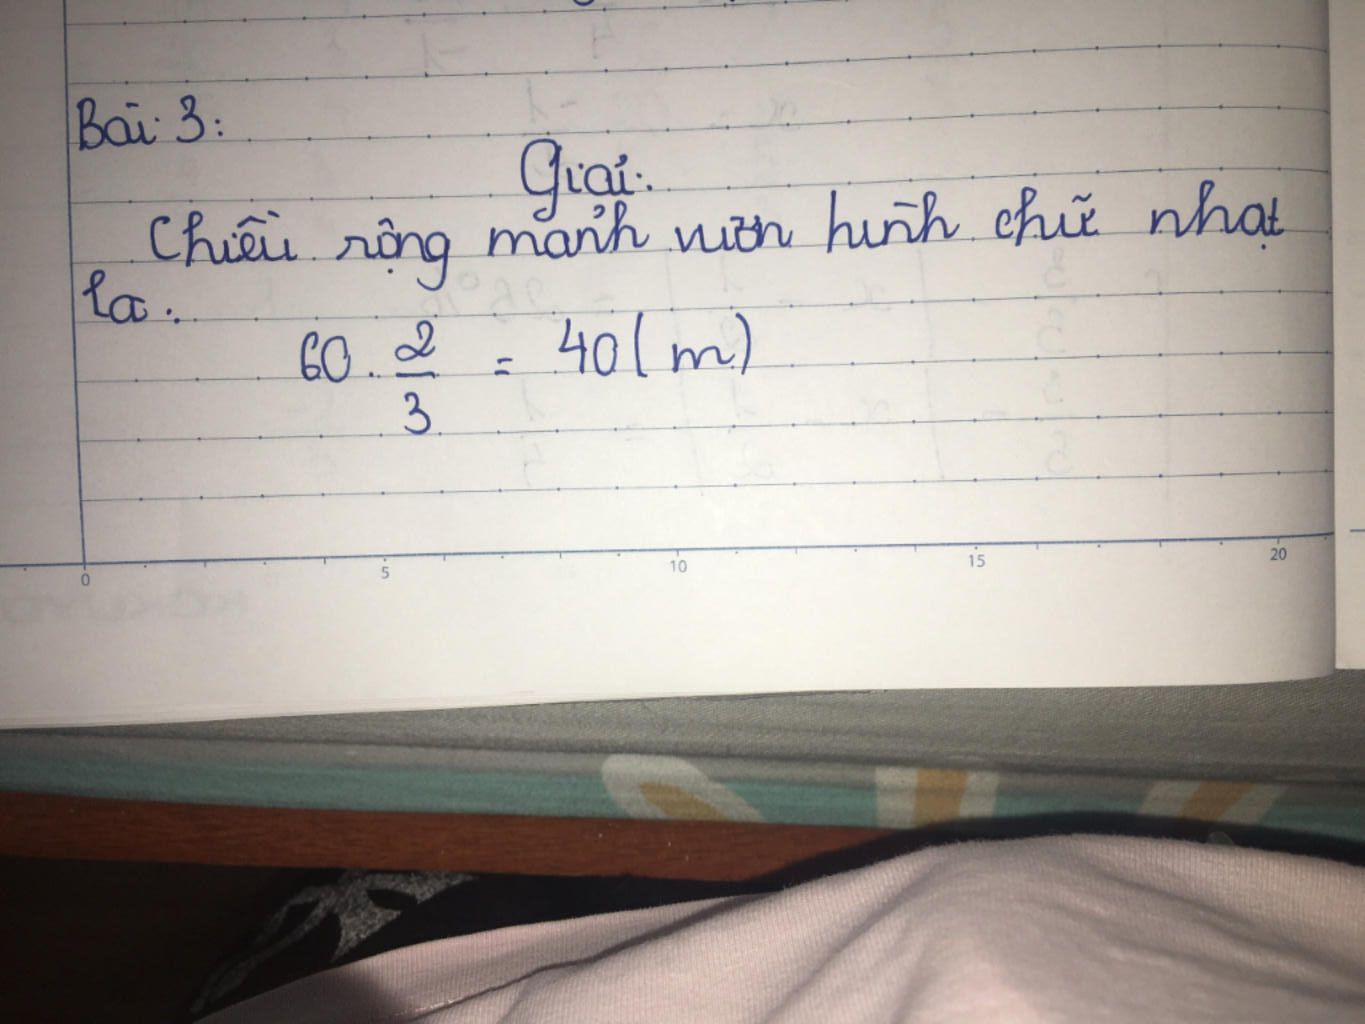 Bài 3:
Giải.
Chiều rộng mảnh vườn hình chữ nhật
là.
60 . 2/3 = 40 ( m )
0 5 10 15 20